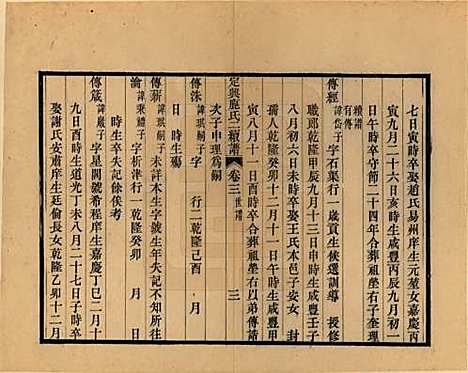 七日寅時卒娶趙氏易州庠生元堃女嘉慶甲
寅九月二十六日亥時生咸豐丙辰九月初一
日午時卒守節二十四年合葬祖塋右子奎理
續譜有傳
傳經 諱岱子 字石渠行一歲貢生候選訓導 授修
職郎乾隆甲辰九月十三日申時生咸豐壬子
八月初六日未時卒娶王氏本邑子安女 封
孺人乾隆癸卯十二月十一日午時生咸豐甲
寅八月十一日酉時卒合葬祖塋右以弟傳諮
次子中理為嗣
定興鹿氏二續譜 卷三 世譜 三
傳洙 諱琪嗣子 字 行二乾隆己酉 月
日 時生殤
傳薪 諱琪嗣子 未詳本生字號生年失記不知所終
諭 諱秉禮子 字析津行一乾隆癸卯 月 日
時生卒失記餘俟考
傳箴 諱嚴子 字星閣號希程庠生嘉慶丁巳二月十
九日酉時生道光丁未八月二十七日子時卒
娶謝氏安肅庠生廷倫長女乾隆乙卯十二月